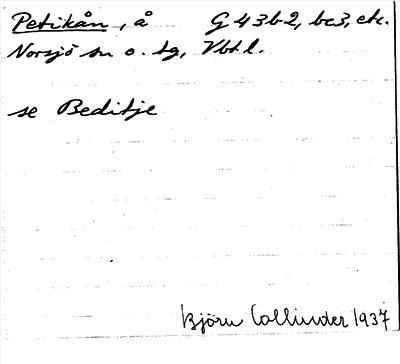 Petikån, å G 43b2, bc3, etc.
Norsjö sn o. tg, Vbtl.
se Beditje
Björn Collinder 1937